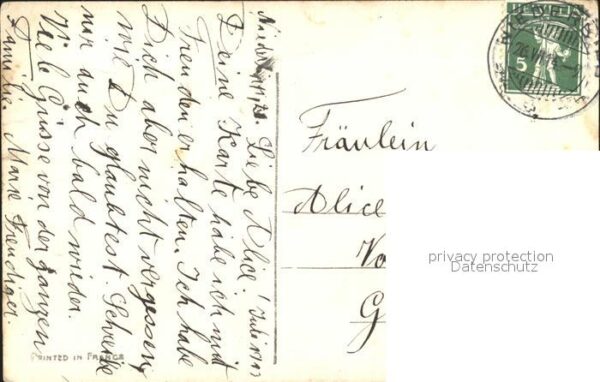 Juli 1913
Liebe Alice!
Deine Karte habe ich mit
Freuden erhalten. Ich habe
Dich aber nicht vergessen
wie Du glaubtest. Schreibe
mir auch bald wieder.
Viele Grüsse von der ganzen
Familie. Marie Frendiger.
Fräulein
Alice
G
5
PRINTED IN FRANCE
privacy protection
Datenschutz